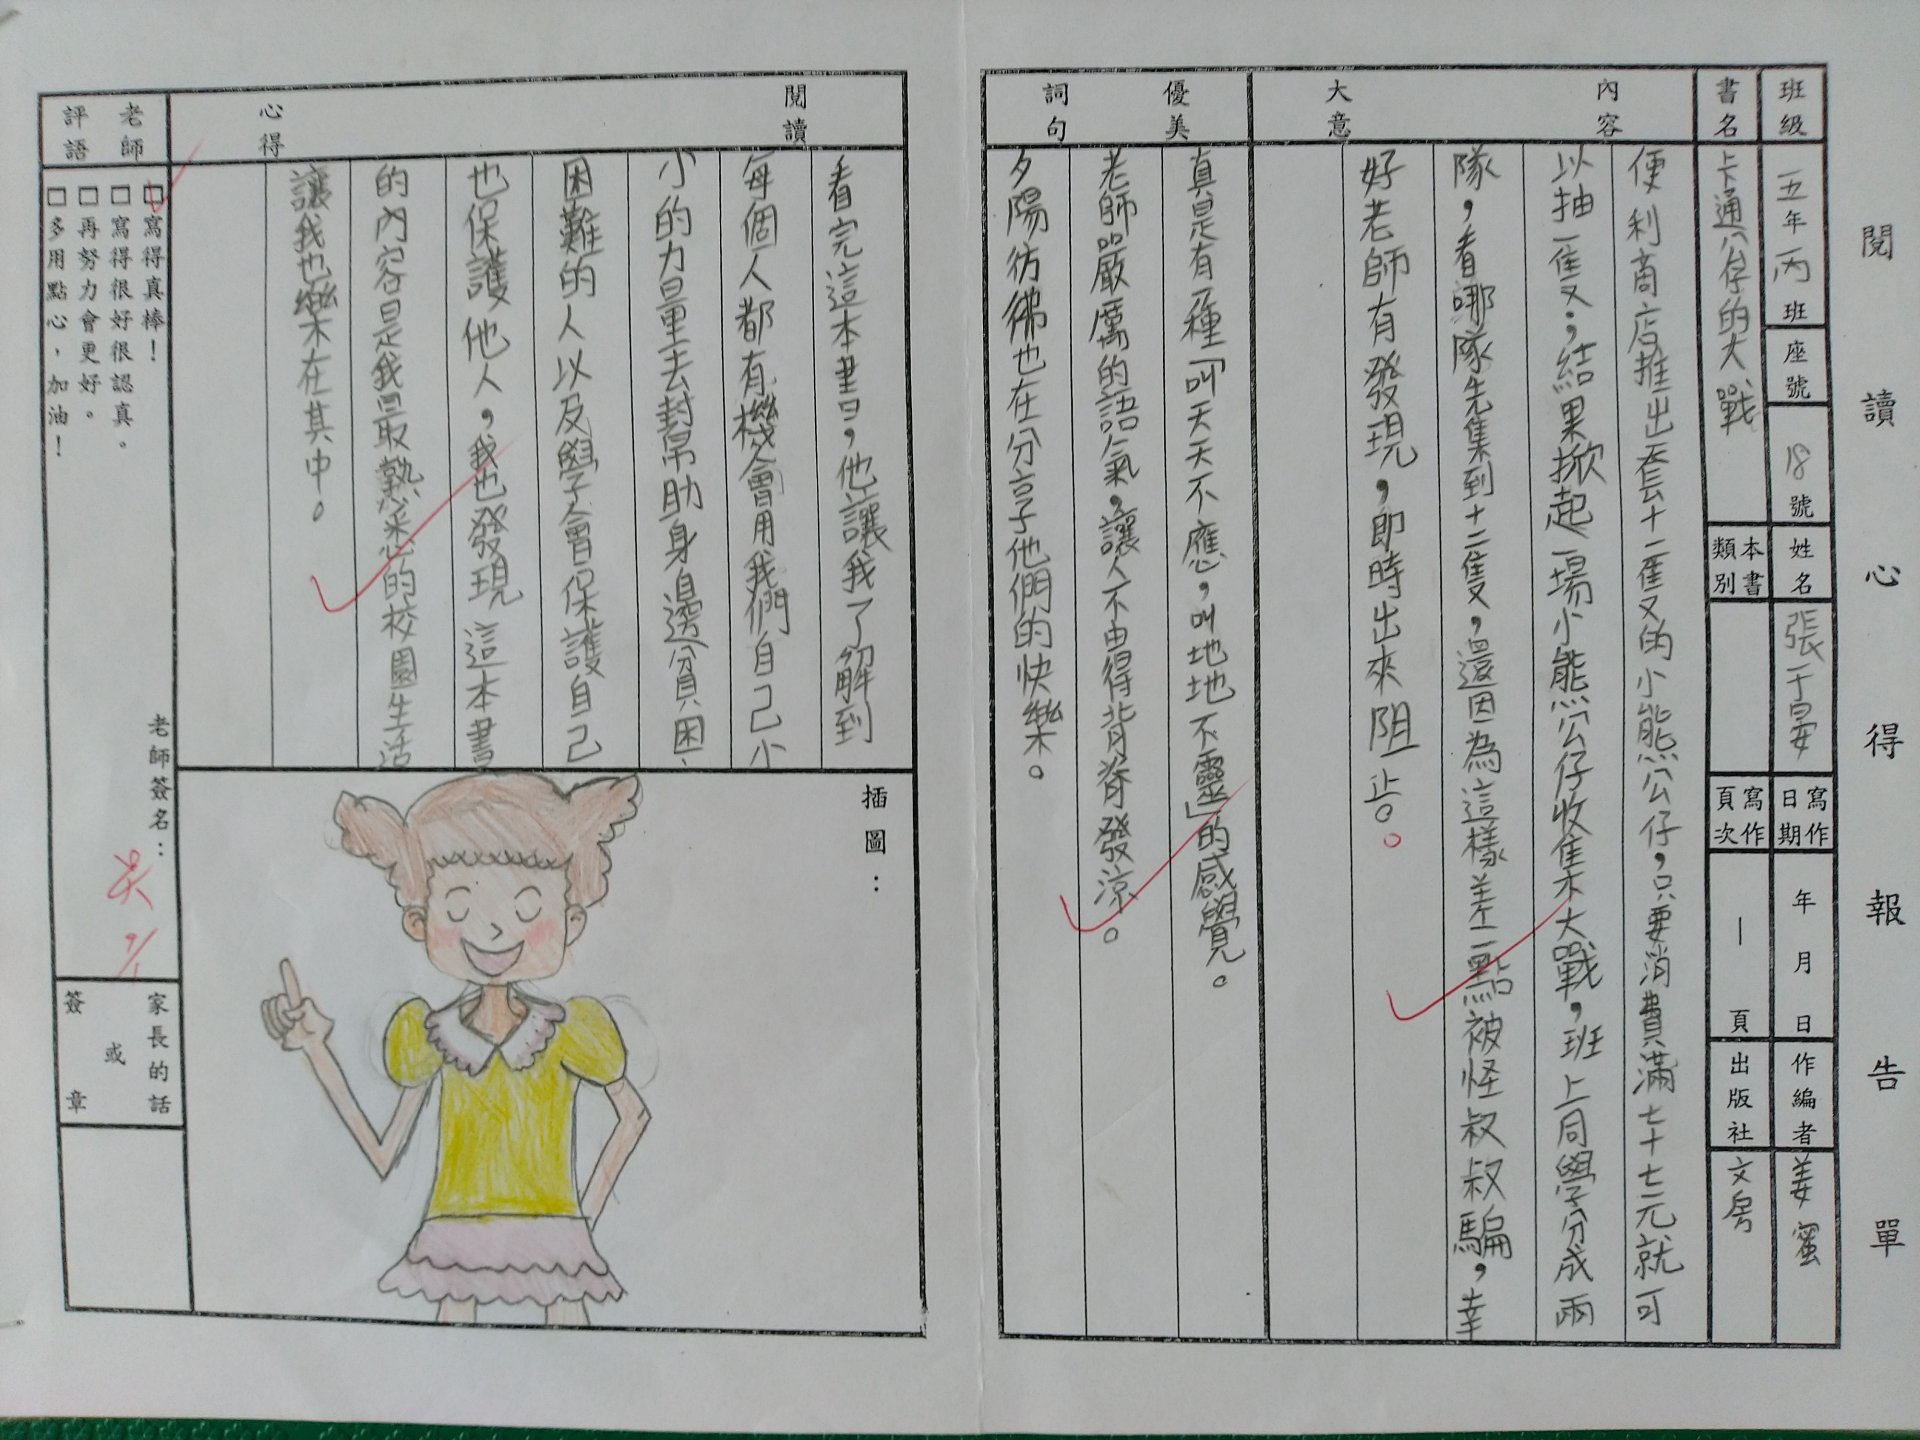 閱讀心得報告單
班級 五年丙班 座號 18號 姓名 張于晏 寫作日期 年 月 日 作編者 姜蜜
書名 卡通公仔的大戰 本書類別 寫作頁次 — 頁 出版社 文房
內容大意
便利商店推出套十二隻的小熊公仔，只要消費滿七十七元就可
以抽一隻，結果掀起一場小熊公仔收集大戰，班上同學分成兩
隊，看哪隊先集到十二隻，還因為這樣差一點被怪叔叔騙，幸
好老師有發現，即時出來阻止。
優美詞句
真是有一種「叫天天不應，叫地地不靈」的感覺。
老師嚴厲的語氣，讓人不由得背脊發涼。
夕陽彷彿也在分享他們的快樂。
閱讀心得
看完這本書，他讓我了解到
每個人都有機會用我們自己小
小的力量去幫助身邊貧困、
困難的人以及學會保護自己
也保護他人，我也發現這本書
的內容是我最熟悉的校園生活
讓我也樂在其中。
插圖：
老師評語
□寫得真棒！
□寫得很好很認真。
□再努力會更好。
□多用點心，加油！
老師簽名：吳 9/1
家長的話
或
簽章